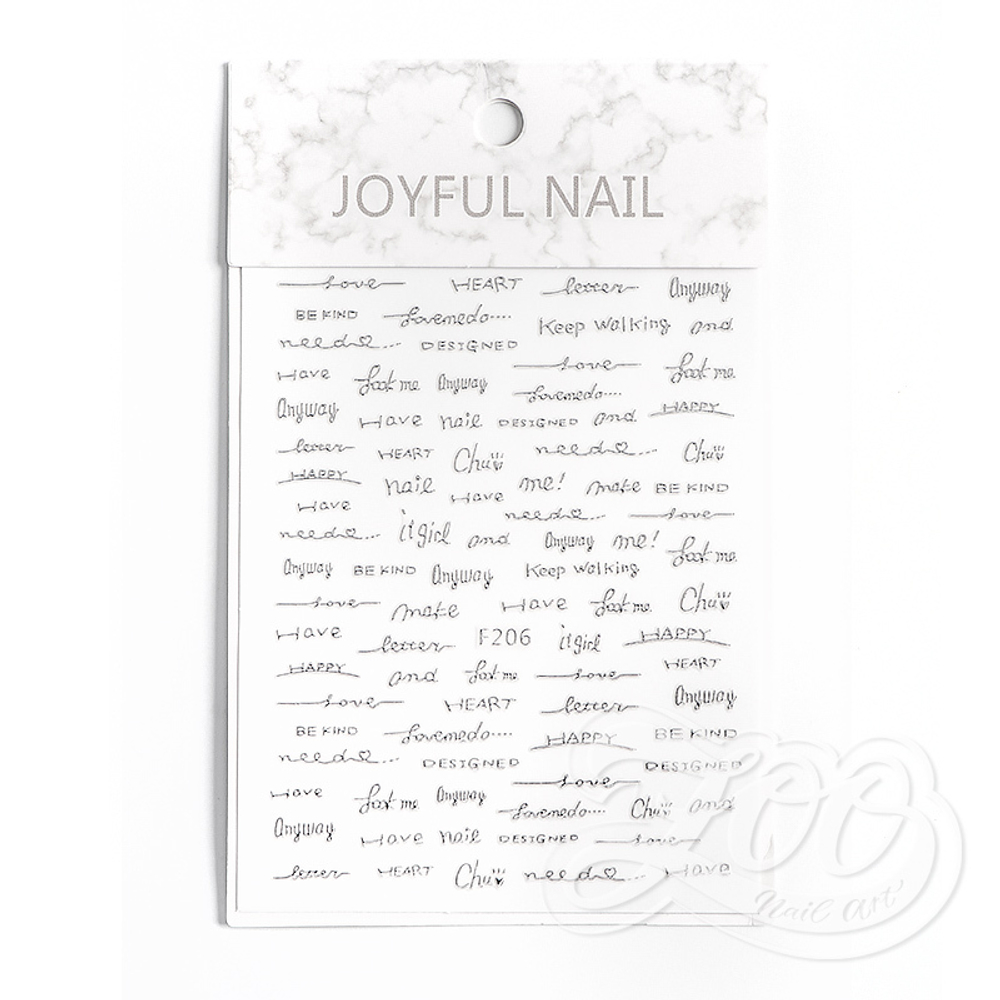 JOYFUL NAIL
love HEART letter Anyway
BE KIND lovemedo.... Keep walking and
need... DESIGNED
love
Have look me Anyway look me
lovemedo....
Anyway Have nail DESIGNED and HAPPY
letter HEART Chu need... Chu
HAPPY nail Have me! make BE KIND
Have need... love
need... it girl and Anyway me! look me
Anyway BE KIND Anyway Keep walking
love make Have look me Chu
Have letter F206 it girl HAPPY
HAPPY and look me love HEART
love HEART letter Anyway
BE KIND lovemedo.... HAPPY BE KIND
need... DESIGNED DESIGNED
love
Have look me Anyway lovemedo.... Chu and
Anyway Have nail DESIGNED love
letter HEART Chu need... Have
Zoo
Nail Art